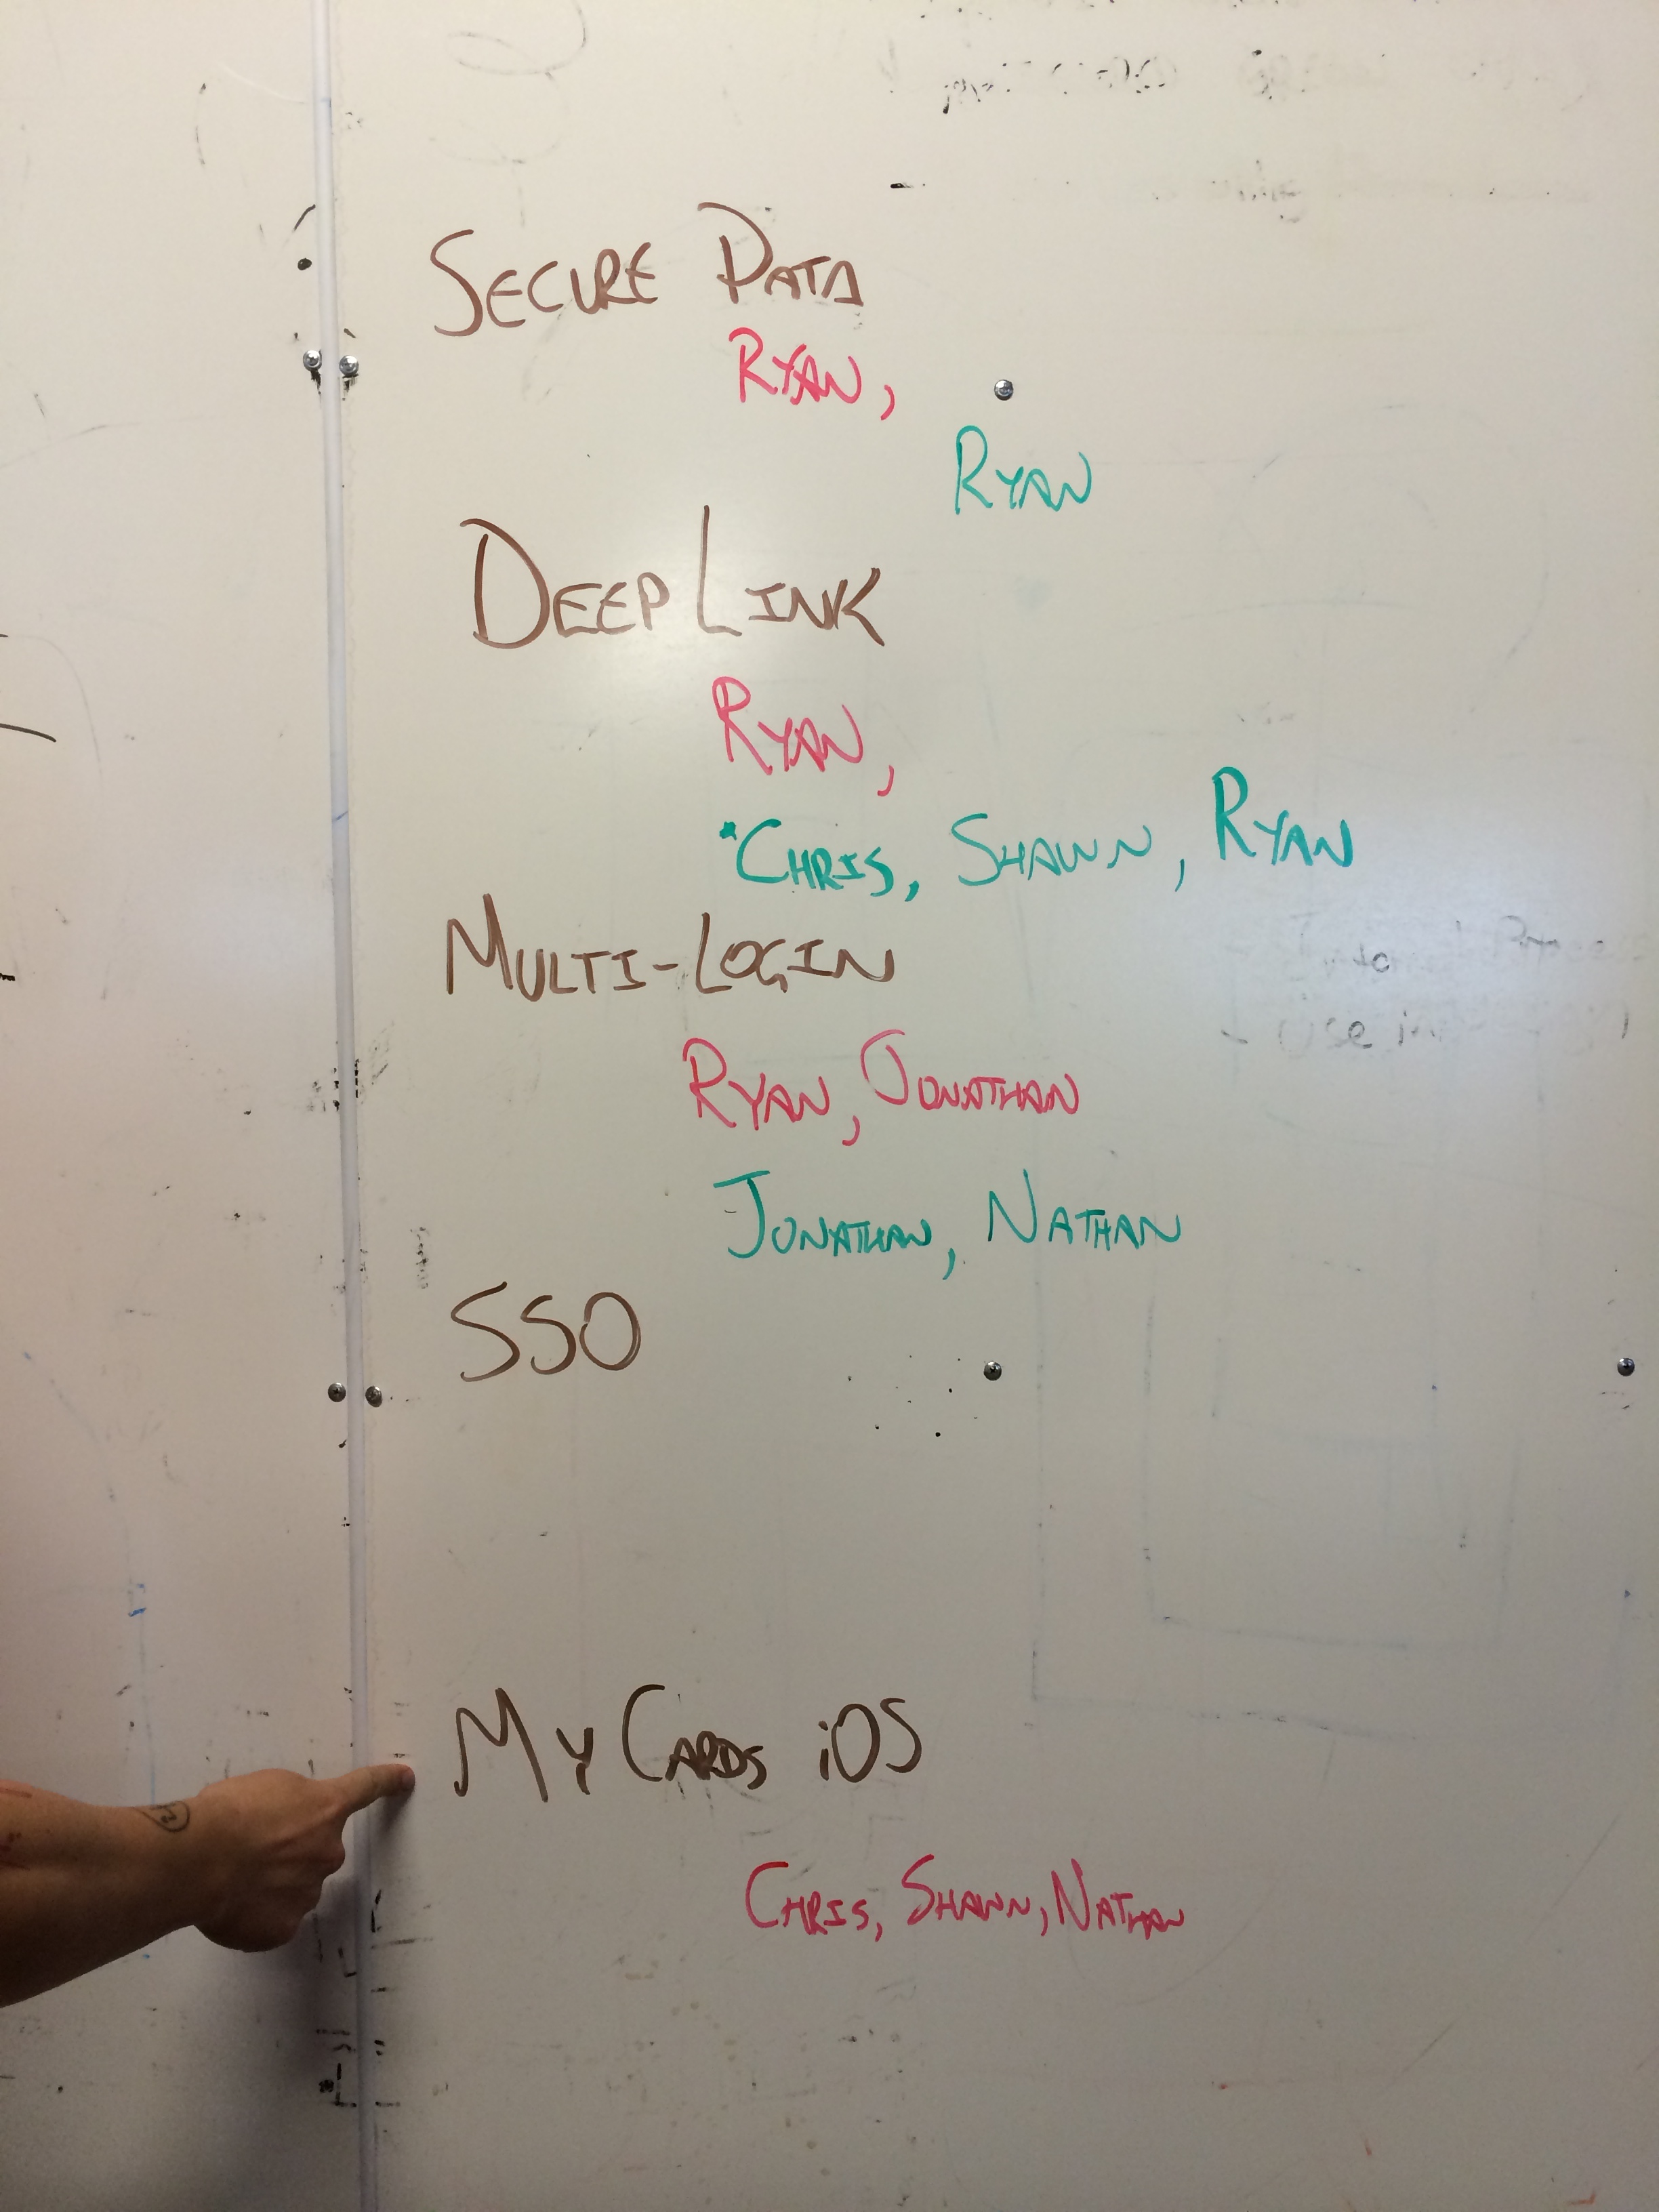 SECURE DATA
RYAN,
RYAN
DEEPLINK
RYAN,
*CHRIS, SHAWN, RYAN
MULTI-LOGIN
to
- Use in
RYAN, JONATHAN
JONATHAN, NATHAN
SSO
MYCARDS iOS
CHRIS, SHAWN, NATHAN